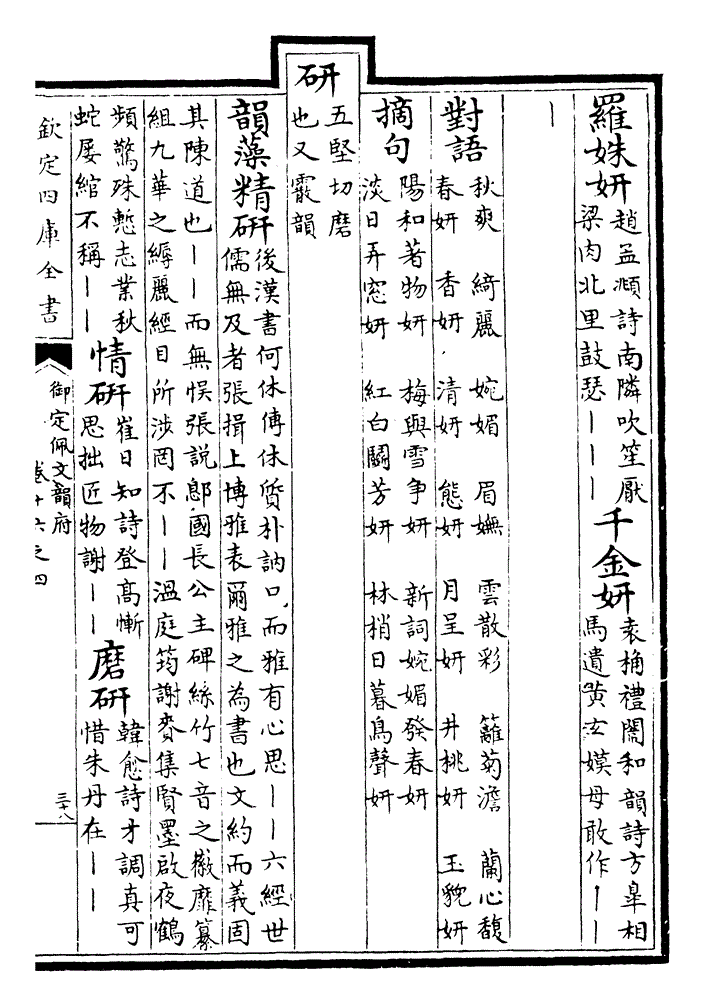 羅姝妍
趙孟頫詩南隣吹笙厭
梁肉北里鼓瑟｜｜｜
千金妍
袁桷禮闈和韻詩方皐相
馬遺黄玄嫫母敢作｜｜
｜
對語
秋爽 綺麗 婉媚 眉嫵 雲散彩 籬菊澹 蘭心馥
春妍 香妍 清妍 態妍 月呈妍 井桃妍 玉貌妍
摘句
陽和著物妍 梅與雪爭妍 新詞婉媚發春妍
淡日弄窓妍 紅白鬭芳妍 林梢日暮鳥聲妍
研
五堅切磨
也又霰韻
韻藻精研
後漢書何休傳休質朴訥口而雅有心思｜｜六經世
儒無及者張揖上博雅表爾雅之為書也文約而義固
其陳道也｜｜而無悞張説鄎國長公主碑絲竹七音之徽靡纂
組九華之縟麗經目所涉罔不｜｜温庭筠謝賚集賢墨啟夜鶴
頻驚殊慙志業秋
蛇屡綰不稱｜｜
情研
崔日知詩登高慚
思拙匠物謝｜｜
磨研
韓愈詩才調真可
惜朱丹在｜｜
欽定四庫全書
御定佩文韻府
卷十六之四
三十八